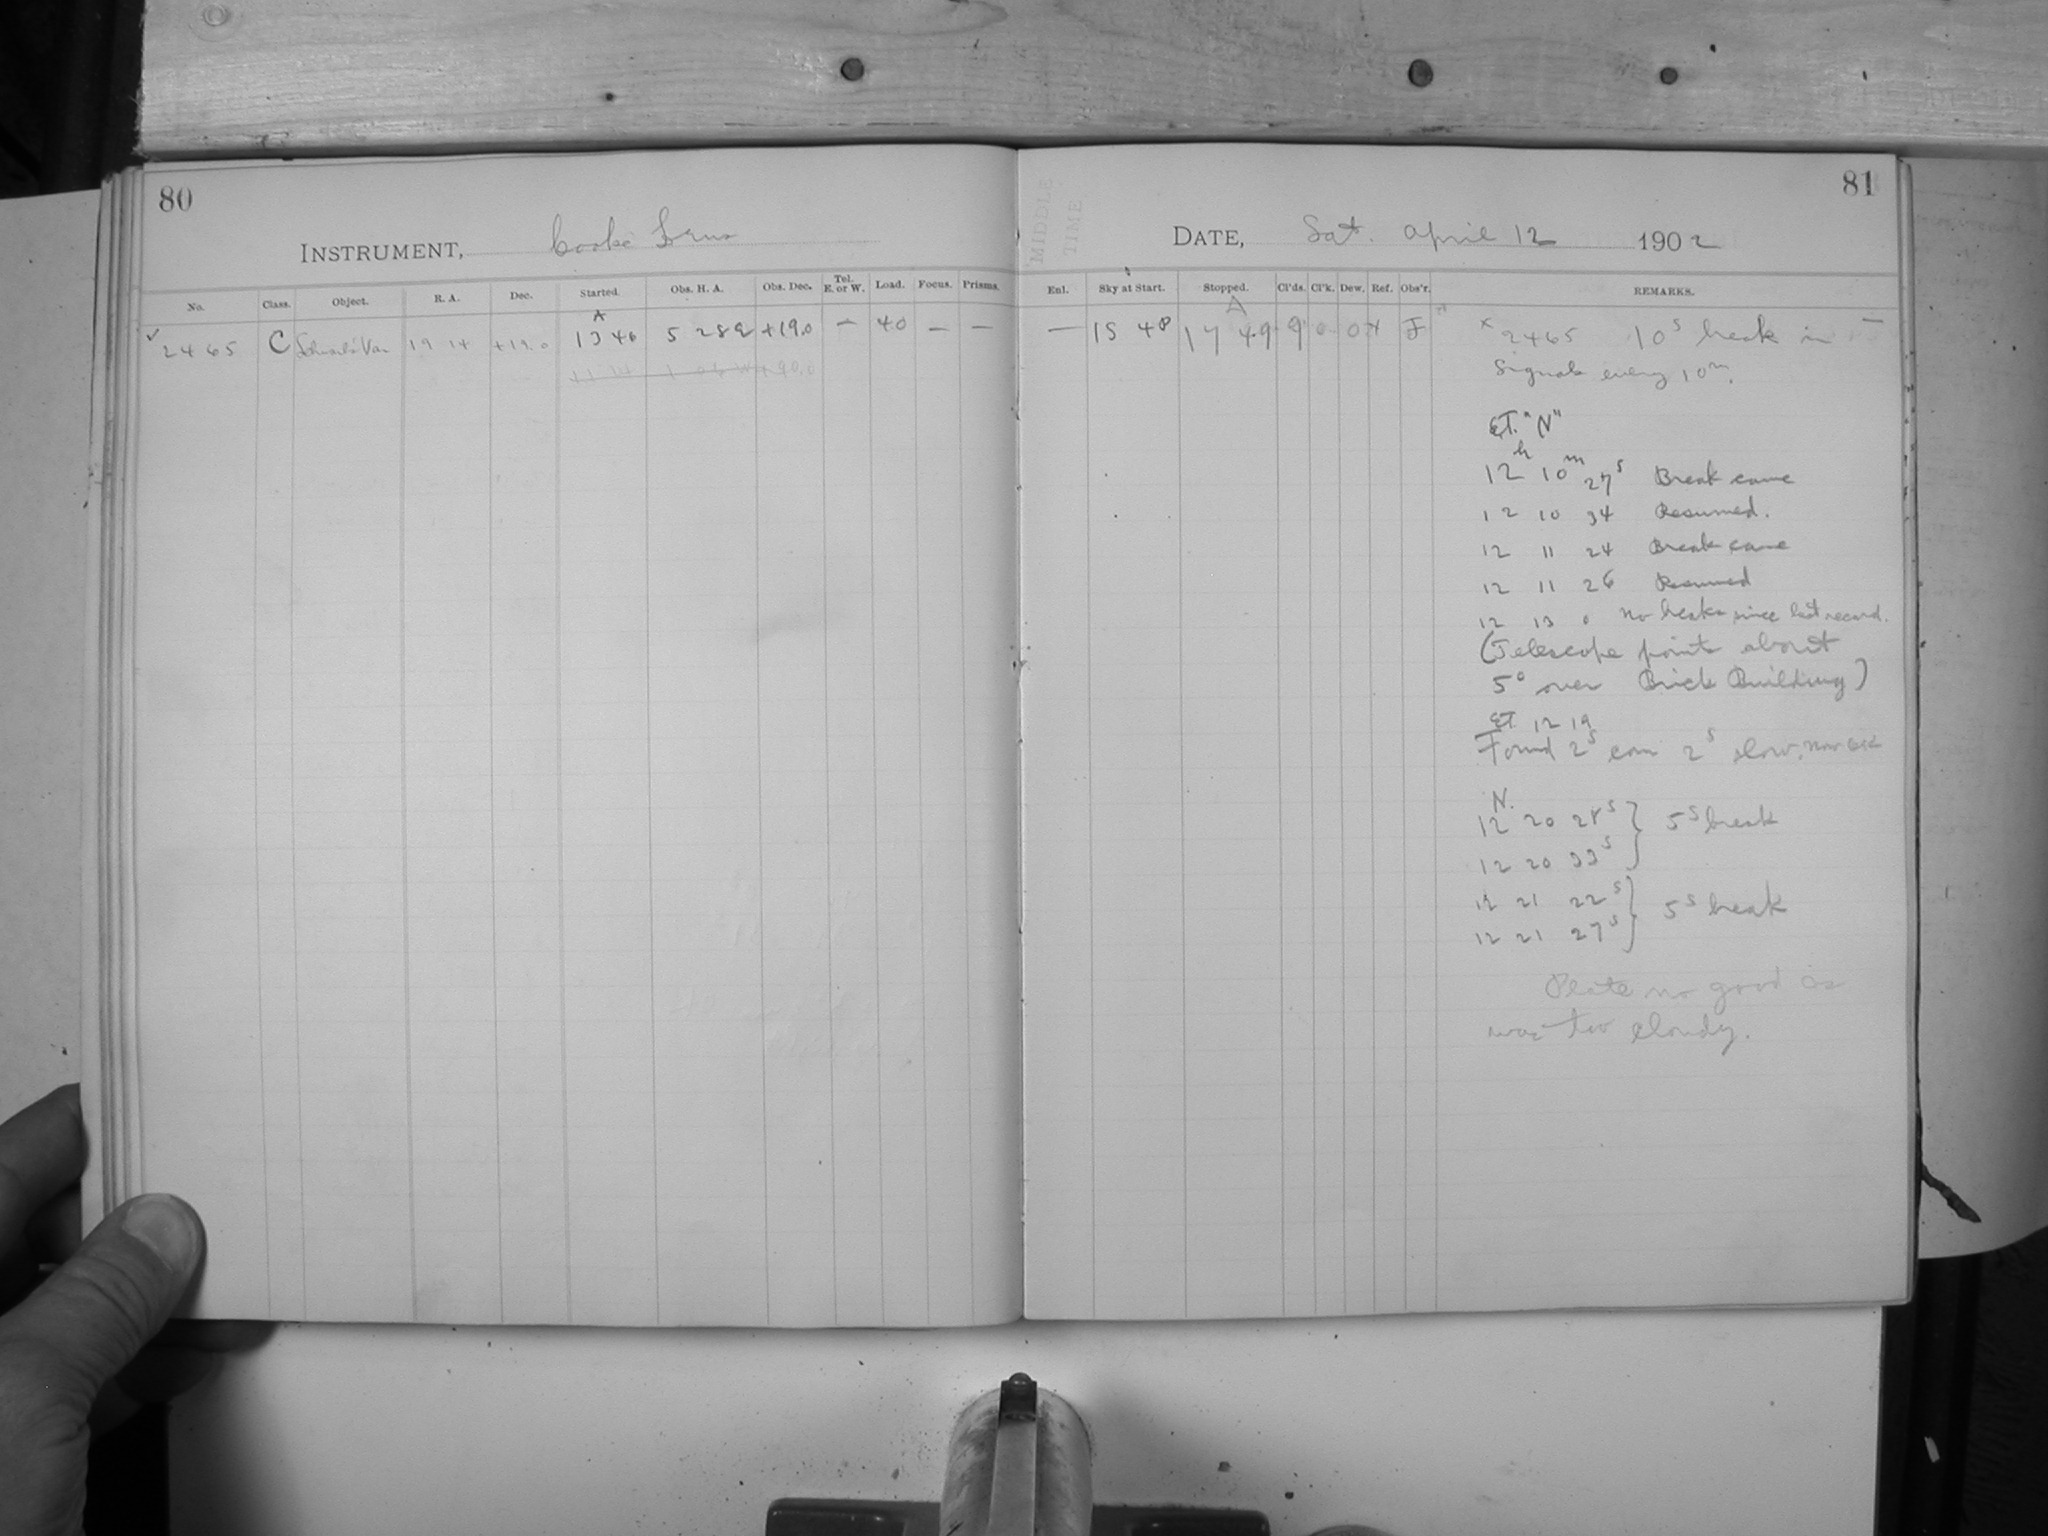 80
INSTRUMENT, Cooke Lens
No. Class. Object. R. A. Dec. Started. Obs. H. A. Obs. Dec. Tel. E. or W. Load. Focus. Prisms.
A
✓ 2465 C Var 19 14 +19.0 13 46 5 28 E +19.0 — 40 — —
81
MIDDLE TIME
DATE, Sat. April 12 1902
Enl. Sky at Start. Stopped. Cl'ds. Cl'k. Dew. Ref. Obs'r. REMARKS.
A
— 15 48 17 49 9 0 0 F x 2465 10s break in
Signals every 10m.
E.T. "N"
12h 10m 27s Break came
12 10 34 Resumed.
12 11 24 Break came
12 11 26 Resumed
12 13 0 No breaks since last record.
(Telescope points about
5° over Brick Building)
E.T. 12 19
Found 2s com 2s slow, now
N.
12 20 28s } 5s break
12 20 33s
12 21 22s } 5s break
12 21 27s
Plate no good as
was too cloudy.